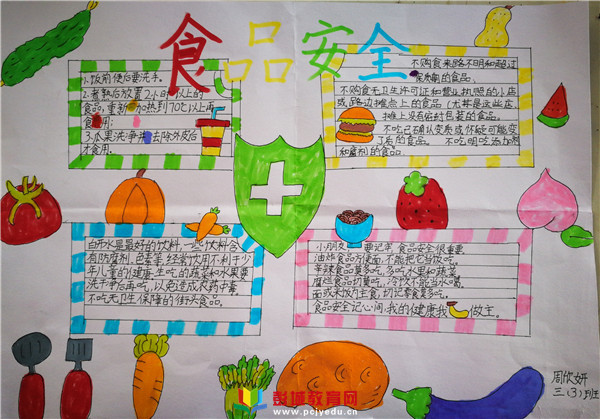 食品安全
1.饭前便后要洗手。
2.煮熟后放置2小时以上的
食品,重新加热到70℃以上再
食用;
3.瓜果洗净并去除外皮后
才食用.
不购食来路不明和超过
的食品。
不购食无卫生许可证和营业执照的小店
或路边摊点上的食品(尤其是这些店
摊上没有密封包装的食品。
不吃已确认变质或怀疑可能变
了质的食品。不吃明吃添加
的食品。
白开水是最好的饮料,一些饮料含
有防腐剂、色素等,经常饮用不利于少
年儿童的健康。生吃的蔬菜和水果要
洗干净后再吃,以免造成农药中毒。
不吃无卫生保障的街头食品。
小朋友 要记牢 食品安全很重要.
油炸食品方便面,不能把它当饭吃.
辛辣食品莫多吃,多吃水果和蔬菜.
腐烂食品切莫吃,冷饮不能当水喝.
面或米饭作主食,切记零食莫多吃.
食品安全记心间,我的健康我做主。
周欣妍
三(3)班
彭城教育网
www.pcjyedu.cn